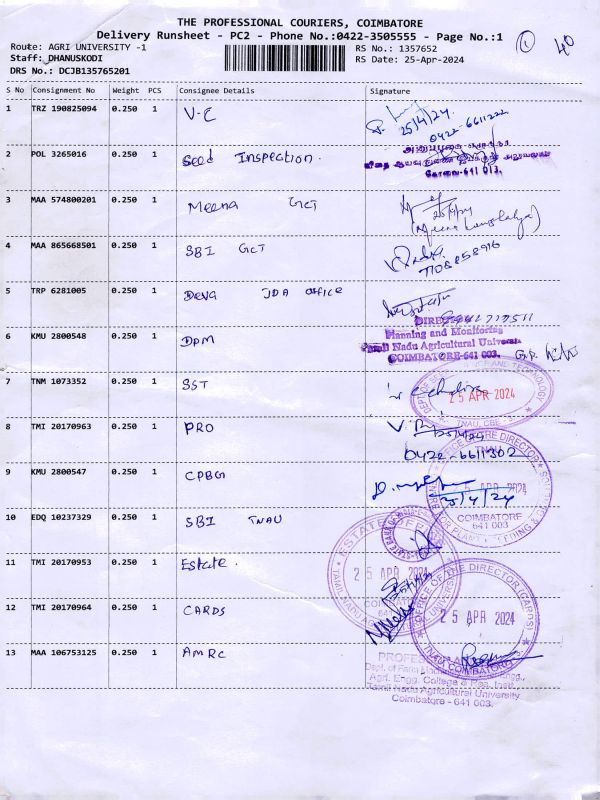 THE PROFESSIONAL COURIERS, COIMBATORE
Delivery Runsheet - PC2 - Phone No.:0422-3505555 - Page No.:1
1
40
Route: AGRI UNIVERSITY -1
RS No.: 1357652
Staff: DHANUSKODI
RS Date: 25-Apr-2024
DRS No.: DCJB135765201
S No Consignment No Weight PCS Consignee Details Signature
1 TRZ 190825094 0.250 1 V-C
25/4/24
0422-6611222
2 POL 3265016 0.250 1 Seed Inspection.
கோவை-641 013.
3 MAA 574800201 0.250 1 Meena GCT
4 MAA 865668501 0.250 1 SBI GCT
5 TRP 6281005 0.250 1 Deva JDA office
6 KMU 2800548 0.250 1 DPM
Planning and Monitoring
Tamil Nadu Agricultural University
COIMBATORE-641 003.
7 TNM 1073352 0.250 1 SST
25 APR 2024
8 TMI 20170963 0.250 1 PRO
25/4/24
0422-6611302
9 KMU 2800547 0.250 1 CPBG
25/4/24
APR 2024
COIMBATORE
641 003
10 EDQ 10237329 0.250 1 SBI TNAU
ESTATE OFFICE
11 TMI 20170953 0.250 1 Estate.
25 APR 2024
12 TMI 20170964 0.250 1 CARDS
OFFICE OF THE DIRECTOR (CARDS)
25 APR 2024
TNAU COIMBATORE
13 MAA 106753125 0.250 1 AMRC
Agri. Engg. College & Res. Inst.,
Tamil Nadu Agricultural University
Coimbatore - 641 003.